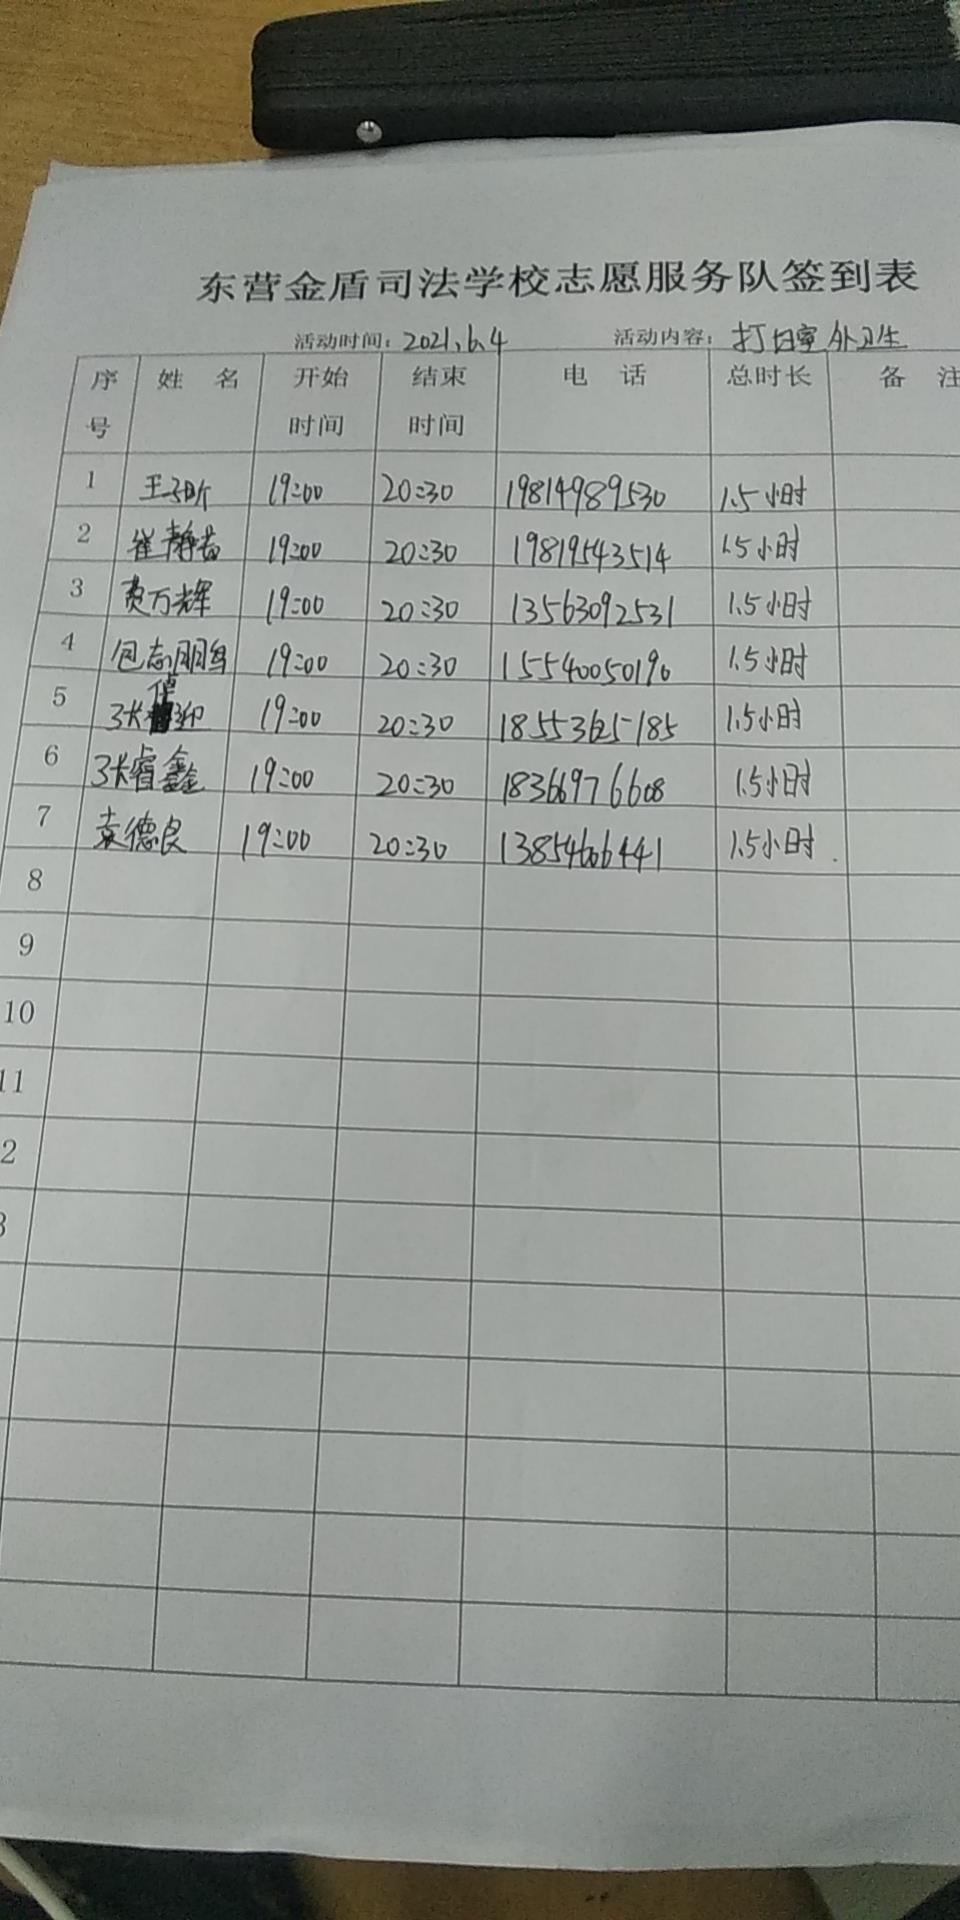 东营金盾司法学校志愿服务队签到表
活动时间：2021.6.4 活动内容：打扫室外卫生
序号 姓 名 开始时间 结束时间 电 话 总时长 备 注
1 王子昕 19:00 20:30 19814989530 1.5小时
2 崔静茹 19:00 20:30 19819543514 1.5小时
3 费万辉 19:00 20:30 13563092531 1.5小时
4 包志鹏 19:00 20:30 15540050190 1.5小时
5 张倬迎 19:00 20:30 18553625185 1.5小时
6 张睿鑫 19:00 20:30 18366976608 1.5小时
7 袁德良 19:00 20:30 13854606441 1.5小时
8
9
10
11
2
3